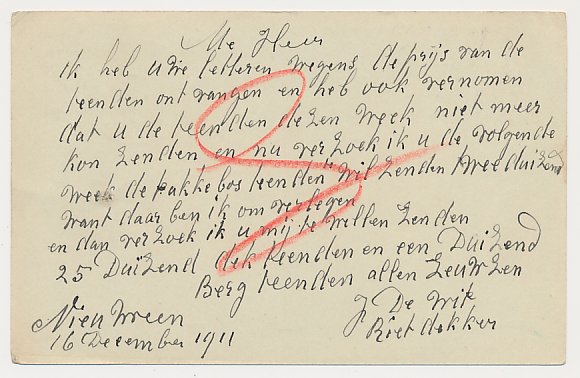 Me Heer
ik heb uwe letteren wegens de prijs van de
teenden ont vangen en heb ook vernomen
dat u de teenden dezen week niet meer
kon zenden en nu ver zoek ik u de volgende
week de pakkebos teenden wil zenden twee duizend
want daar ben ik om verlegen
en dan ver zoek ik u mij te willen zenden
25 Duizend dek teenden en een Duizend
Berg teenden allen zeuwzen
Nieuwveen J De Wit
16 December 1911 Riet dekker